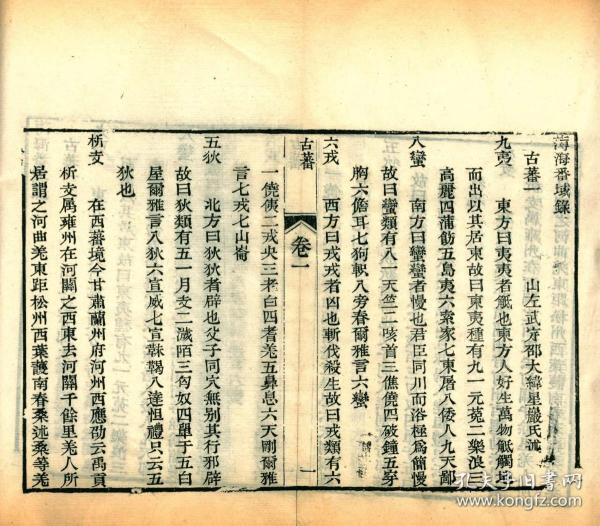 薄海番域錄
古蕃一 山左武定邵大緯星巖氏述
九夷 東方曰夷夷者觝也東方人好生萬物觝觸地
而出以其居東故曰東夷種有九一元菟二樂浪三
高麗四蒲飭五鳧夷六索家七東屠八倭人九天鄙
八蠻 南方曰蠻蠻者慢也君臣同川而浴極爲簡慢
故曰蠻類有八一天竺二咳首三僬僥四破鐘五穿
胸六儋耳七狗軹八旁春爾雅言六蠻
六戎 西方曰戎戎者凶也斬伐殺生故曰戎類有六
古蕃 卷一 一
一僥侇二戎央三老白四耆羌五鼻息六天剛爾雅
言七戎七山崙
五狄 北方曰狄狄者辟也父子同穴無别其行邪辟
故曰狄類有五一月支二濊陌三匈奴四單于五白
屋爾雅言八狄六宣威七宣靺鞨八達怛禮只云五
狄也
析支 在西蕃境今甘肅蘭州府河州西應劭云禹貢
析支属雍州在河關之西東去河關千餘里羌人所
居謂之河曲羌東距松州西葉護南春桑述桑等羌
孔夫子旧书网
www.kongfz.com